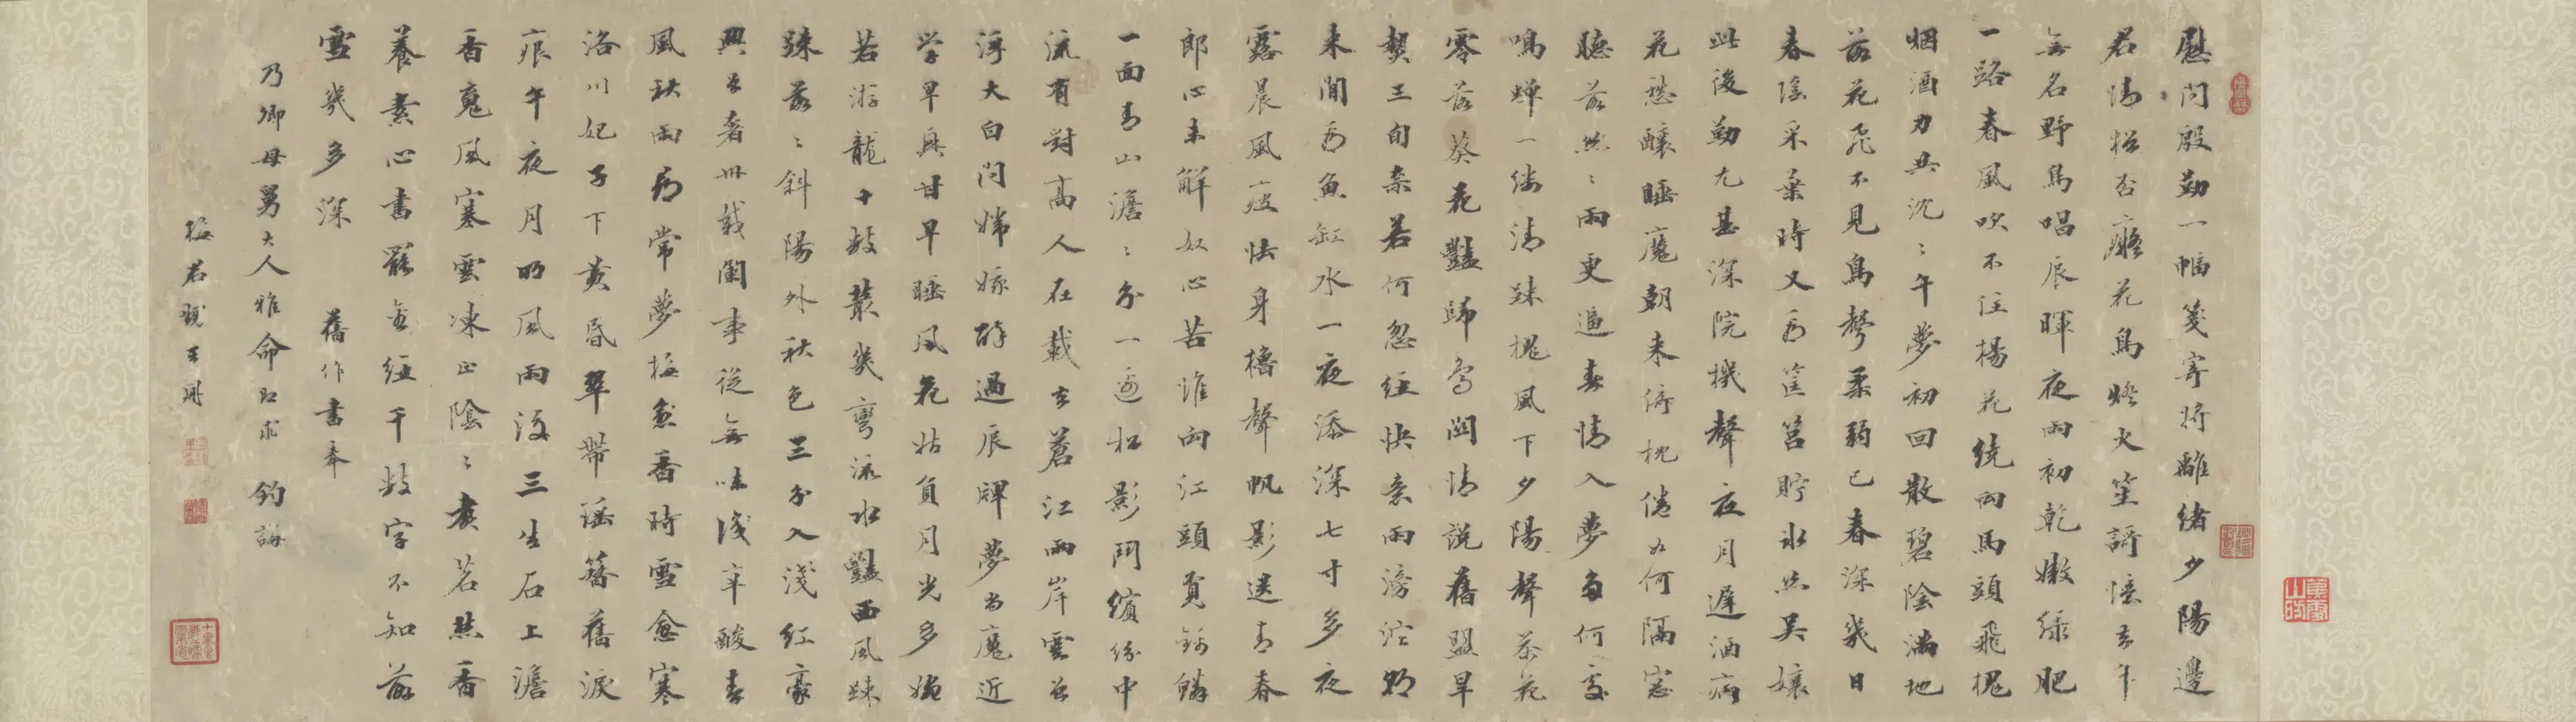 慰問殷勤一幅箋寄將離緒夕陽邊
君情招否癡花鳥燈火笙謌憶去年
無名野鳥唱辰暉夜雨初乾嫩綠肥
一路春風吹不住楊花繞向馬頭飛槐
烟酒力共沈沈午夢初回散碧陰滿地
落花飛不見鳥聲柔弱已春深幾日
春陰采葉時又為筐筥貯冰絲吳孃
此後勤尤甚深院機聲夜月遲酒病
花愁釀睡魔朝來倚枕倦如何隔窗
聽落絲絲雨更通春情入夢多何處
鳴蟬一縷清疎槐風下夕陽聲茶花
零落葵花豔歸鳥關情說舊盟早
契三旬奈若何忽經快意雨滂沱朝
來閒為魚缸水一夜添深七寸多夜
露晨風疲怯身櫓聲帆影送青春
郎心未解奴心苦惟向江頭買錦鱗
一面青山澹澹分一邊松影鬥繽紛中
流有對高人在載去蒼江兩岸雲若
浮大白問姊嫁醉過辰牌夢當魔近
學早興甘早睡風花姑負月光多婉
若游龍十数叢幾彎流水豔西風踈
踈落落斜陽外秋色三分入淺紅豪
興年著卅載闌事從無味淺辛酸春
風秋雨為常夢梅愈香時雪愈寒
洛川妃子下黃昏翠帶瑤簪舊淚
痕午夜月明風雨後三生石上澹
香魂風寒雲凍正陰陰煮茗焚香
養素心書罷金經千数字不知前
雪幾多深　舊作書奉
乃卿母舅大人雅命即求　鈞誨
梅君 王